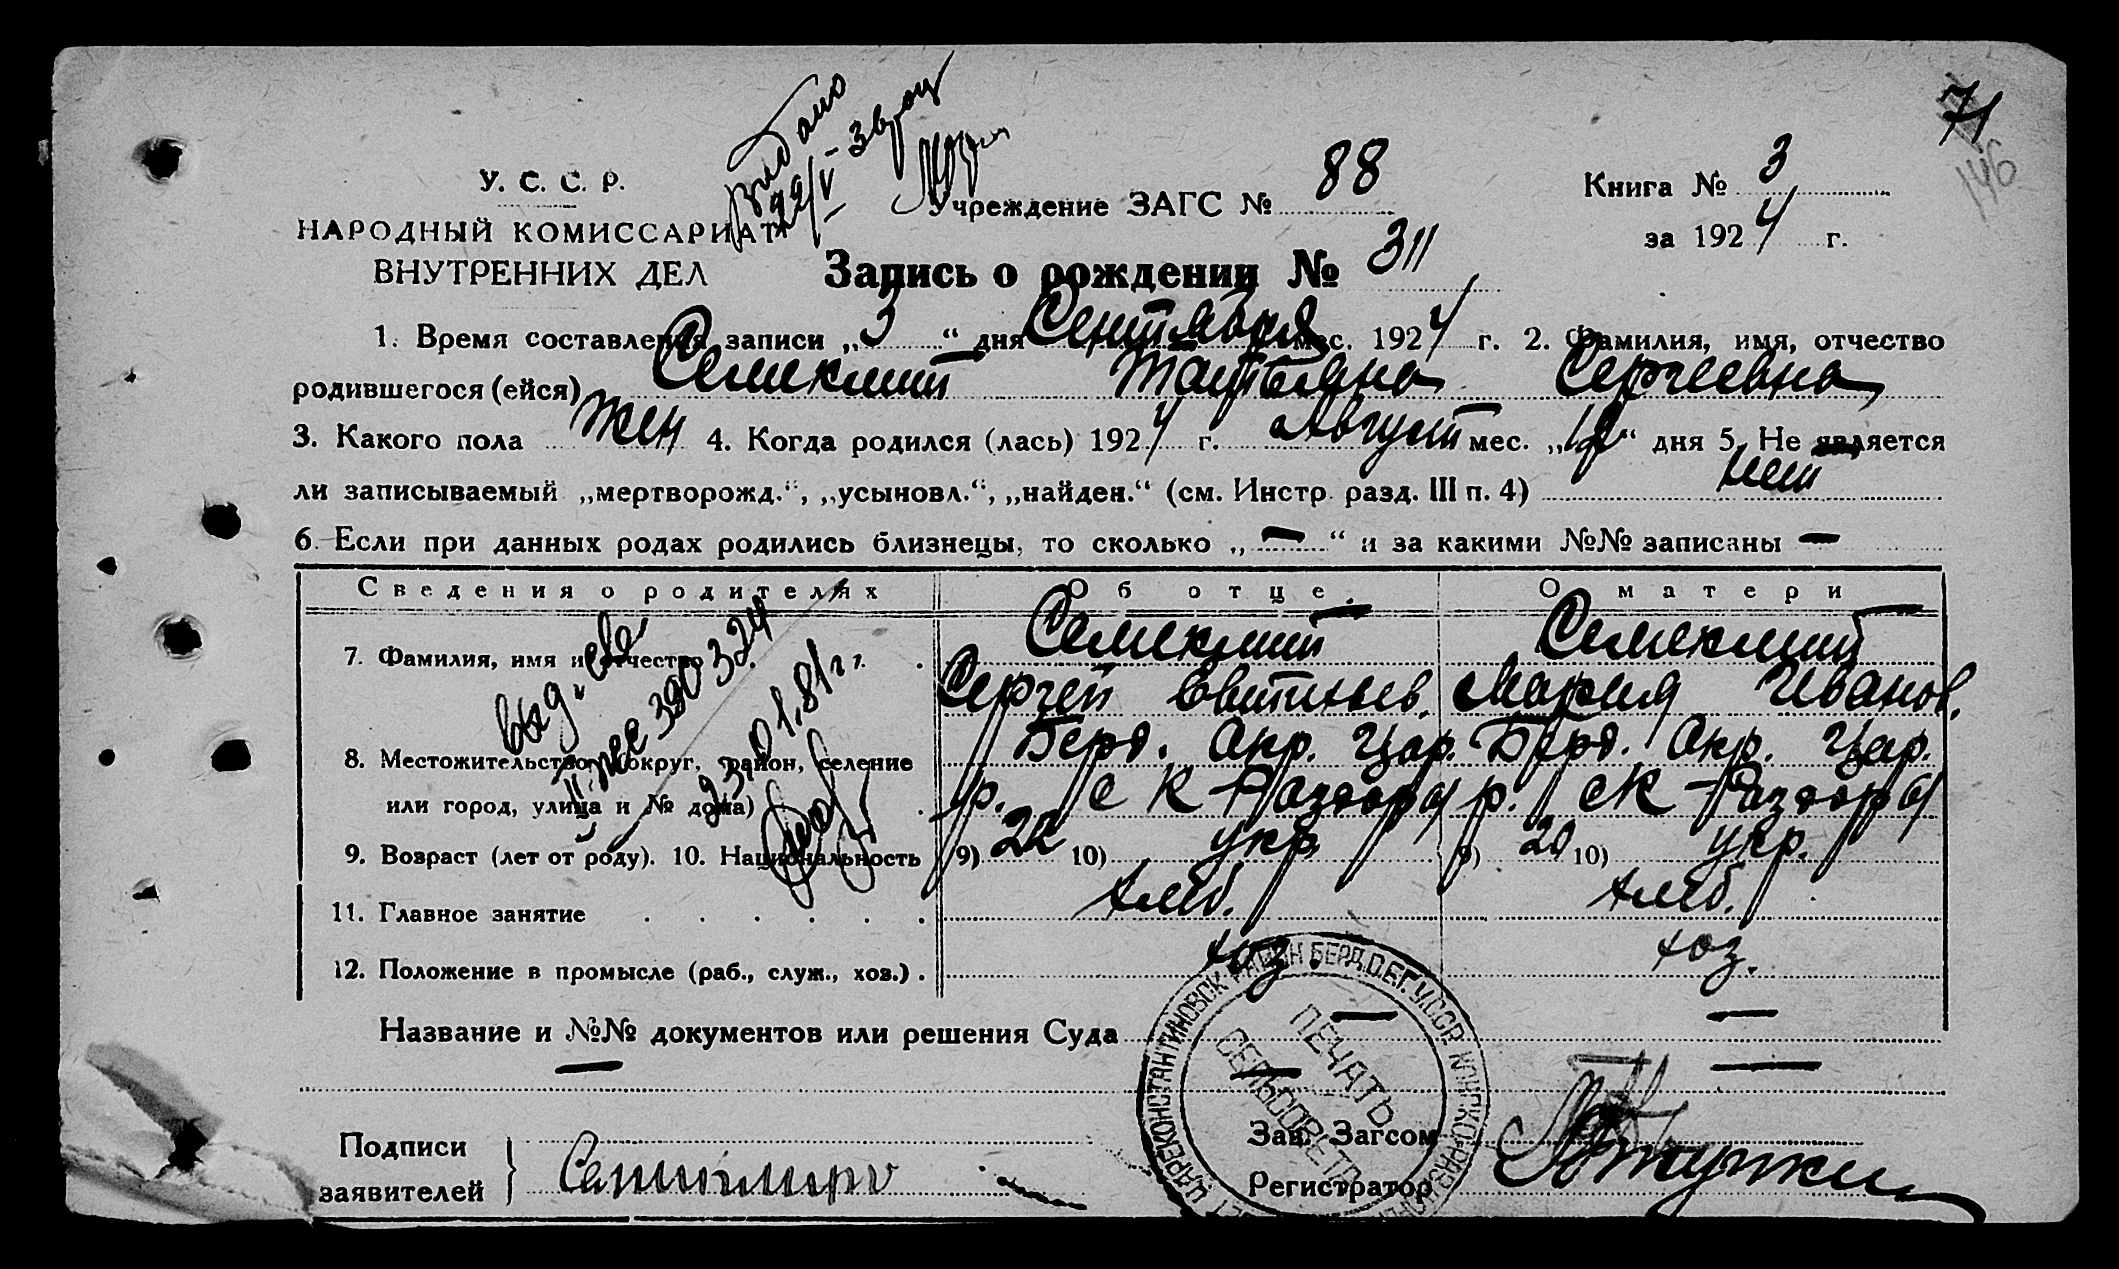 71
146
Видано
22/V - Зврац
У. С. С. Р.
НАРОДНЫЙ КОМИССАРИАТ
ВНУТРЕННИХ ДЕЛ
Учреждение ЗАГС № 88
Книга № 3
за 1924 г.
Запись о рождении № 311
1. Время составления записи „3“ дня Сентября мес. 1924 г. 2. Фамилия, имя, отчество
родившегося (ейся) Семеклит Татьяна Сергеевна
3. Какого пола жен 4. Когда родился (лась) 1924 г. Август мес. „19“ дня 5. Не является
ли записываемый „мертворожд.“, „усыновл.“, „найден.“ (см. Инстр. разд. III п. 4) нет
6. Если при данных родах родились близнецы, то сколько „—“ и за какими №№ записаны —
Сведения о родителях Об отце. О матери
7. Фамилия, имя и отчество Семеклит Семеклит
Сергей Мария Иванов.
8. Местожительство (округ, район, селение Берд. Окр. Цар. Берд. Окр. Цар.
или город, улица и № дома) р. с К-Раздоры р. с К-Раздоры
9. Возраст (лет от роду). 10. Национальность 9) 22 10) укр. 9) 20 10) укр.
11. Главное занятие хлеб. хлеб.
12. Положение в промысле (раб., служ., хоз.) хоз. хоз.
выд. св-
390324
23.01.81 гг.
Название и №№ документов или решения Суда — —
— — —
Подписи
заявителей
Зав. Загсом
Регистратор
ЦАРЕКОНСТАНТИНОВСК РАЙОН БЕРД.О.ЕГ.У.С.С.Р.
ПЕЧАТЬ
СЕЛЬСОВЕТА